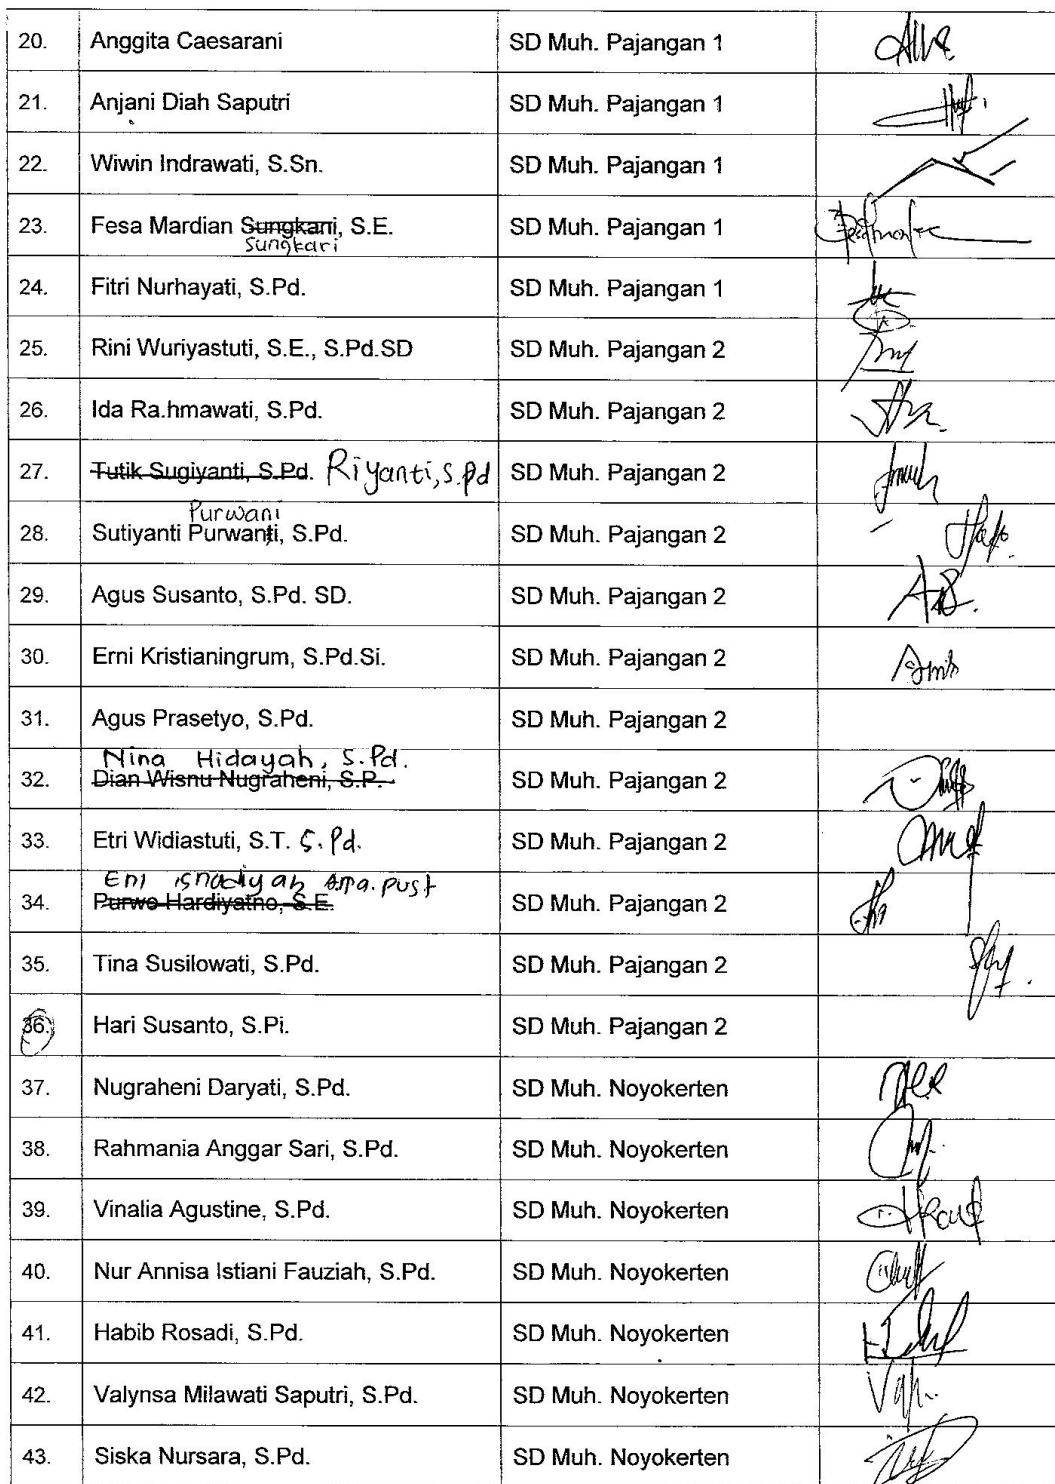 20. Anggita Caesarani SD Muh. Pajangan 1
21. Anjani Diah Saputri SD Muh. Pajangan 1
22. Wiwin Indrawati, S.Sn. SD Muh. Pajangan 1
23. Fesa Mardian Sungkani, S.E. SD Muh. Pajangan 1
Sungkari
24. Fitri Nurhayati, S.Pd. SD Muh. Pajangan 1
25. Rini Wuriyastuti, S.E., S.Pd.SD SD Muh. Pajangan 2
26. Ida Ra.hmawati, S.Pd. SD Muh. Pajangan 2
27. Tutik Sugiyanti, S.Pd. Riyanti, S.Pd SD Muh. Pajangan 2
Purwani
28. Sutiyanti Purwanti, S.Pd. SD Muh. Pajangan 2
29. Agus Susanto, S.Pd. SD. SD Muh. Pajangan 2
30. Erni Kristianingrum, S.Pd.Si. SD Muh. Pajangan 2
31. Agus Prasetyo, S.Pd. SD Muh. Pajangan 2
Nina Hidayah, S.Pd.
32. Dian Wisnu Nugraheni, S.P. SD Muh. Pajangan 2
33. Etri Widiastuti, S.T. S.Pd. SD Muh. Pajangan 2
Eni Isnadiyah Ama.pust
34. Purwo Hardiyatno, S.E. SD Muh. Pajangan 2
35. Tina Susilowati, S.Pd. SD Muh. Pajangan 2
36. Hari Susanto, S.Pi. SD Muh. Pajangan 2
37. Nugraheni Daryati, S.Pd. SD Muh. Noyokerten
38. Rahmania Anggar Sari, S.Pd. SD Muh. Noyokerten
39. Vinalia Agustine, S.Pd. SD Muh. Noyokerten
40. Nur Annisa Istiani Fauziah, S.Pd. SD Muh. Noyokerten
41. Habib Rosadi, S.Pd. SD Muh. Noyokerten
42. Valynsa Milawati Saputri, S.Pd. SD Muh. Noyokerten
43. Siska Nursara, S.Pd. SD Muh. Noyokerten